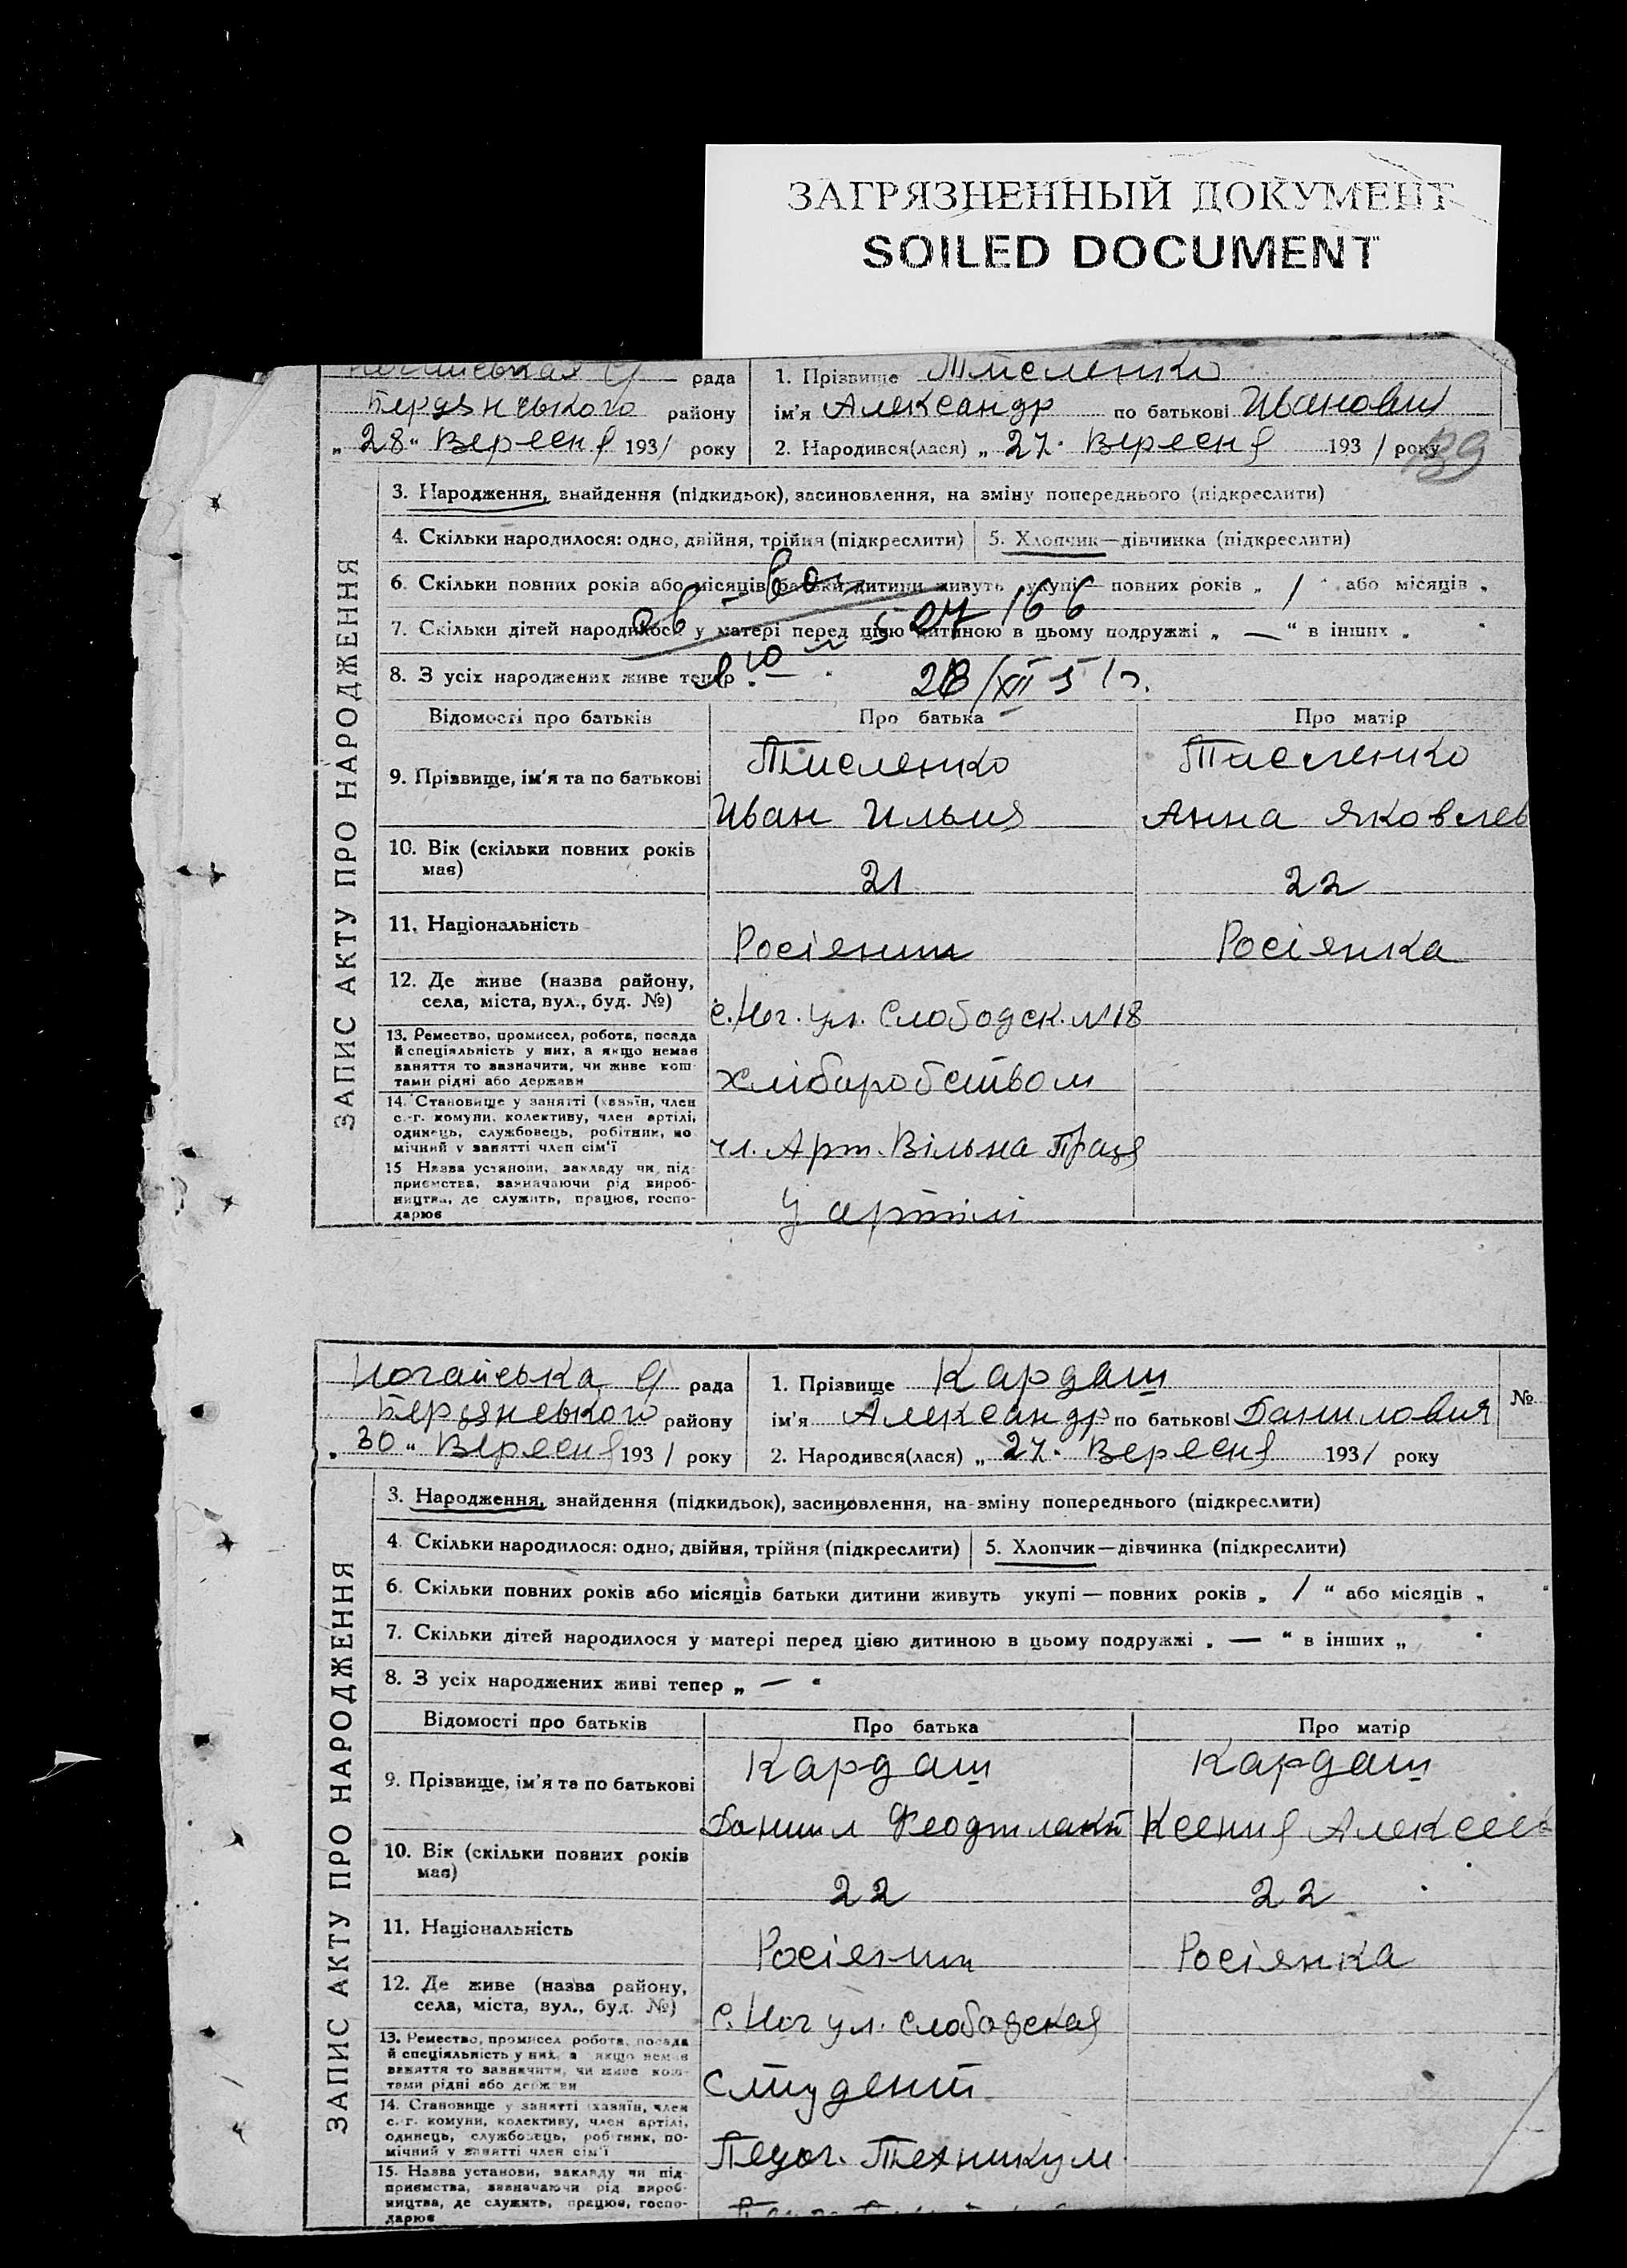 ЗАГРЯЗНЕННЫЙ ДОКУМЕНТ
SOILED DOCUMENT
рада
Бердянського району
„ 28 “ Вересня 193/ року
1. Прізвище Тисленко
ім’я Александр по батькові Иванович
2. Народився(лася) „ 27 “ Вересня 193 / року
139
ЗАПИС АКТУ ПРО НАРОДЖЕННЯ
3. Народження, знайдення (підкидьок), засиновлення, на зміну попереднього (підкреслити)
4. Скільки народилося: одно, двійня, трійня (підкреслити)
5. Хлопчик—дівчинка (підкреслити)
6. Скільки повних років або місяців батьки дитини живуть укупі — повних років „ / “ або місяців „
7. Скільки дітей народилося у матері перед цією дитиною в цьому подружжі „ — “ в інших „ “
8. З усіх народжених живе тепер „ — “
28/XII 51 г.
Відомості про батьків
Про батька
Про матір
9. Прізвище, ім’я та по батькові
Тисленко
Иван Ильич
Тисленко
Анна Яковлев
10. Вік (скільки повних років має)
21
22
11. Національність
Росіянин
Росіянка
12. Де живе (назва району,
села, міста, вул., буд. №)
с. Ног. ул. Слободск. N18
13. Ремество, промисел, робота, посада
й спеціяльність у них, а якщо немає
заняття то зазначити, чи живе кош-
тами рідні або держави
хліборобством
14. Становище у занятті (хазяїн, член
с.-г. комуни, колективу, член артілі,
одинець, службовець, робітник, по-
мічний у занятті член сім’ї
чл. Арт. Вільна Праця
15 Назва установи, закладу чи під-
приємства, зазначаючи рід вироб-
ництва, де служить, працює, госпо-
дарює
У артілі
Ногайська рада
Бердянського району
„ 30 “ Вересня 193 / року
1. Прізвище Кардаш
ім’я Александр по батькові Данилович
2. Народився(лася) „ 27 “ Вересня 193/ року
№
ЗАПИС АКТУ ПРО НАРОДЖЕННЯ
3. Народження, знайдення (підкидьок), засиновлення, на зміну попереднього (підкреслити)
4. Скільки народилося: одно, двійня, трійня (підкреслити)
5. Хлопчик—дівчинка (підкреслити)
6. Скільки повних років або місяців батьки дитини живуть укупі — повних років „ / “ або місяців „ “
7. Скільки дітей народилося у матері перед цією дитиною в цьому подружжі „ — “ в інших „ “
8. З усіх народжених живі тепер „ — “
Відомості про батьків
Про батька
Про матір
9. Прізвище, ім’я та по батькові
Кардаш
Даниил
Кардаш
Ксения Алексеев
10. Вік (скільки повних років має)
22
22
11. Національність
Росіянин
Росіянка
12. Де живе (назва району,
села, міста, вул., буд. №)
с. Ног ул. Слободская
13. Ремество, промисел робота, посада
й спеціяльність у них, а якщо немає
заняття то зазначити, чи живе кош-
тами рідні або держави
студент
14. Становище у занятті (хазяїн, член
с.-г. комуни, колективу, член артілі,
одинець, службовець, робітник, по-
мічний у занятті член сім’ї
Педог. Техникум
15. Назва установи, закладу чи під-
приємства, зазначаючи рід вироб-
ництва, де служить, працює, госпо-
дарює